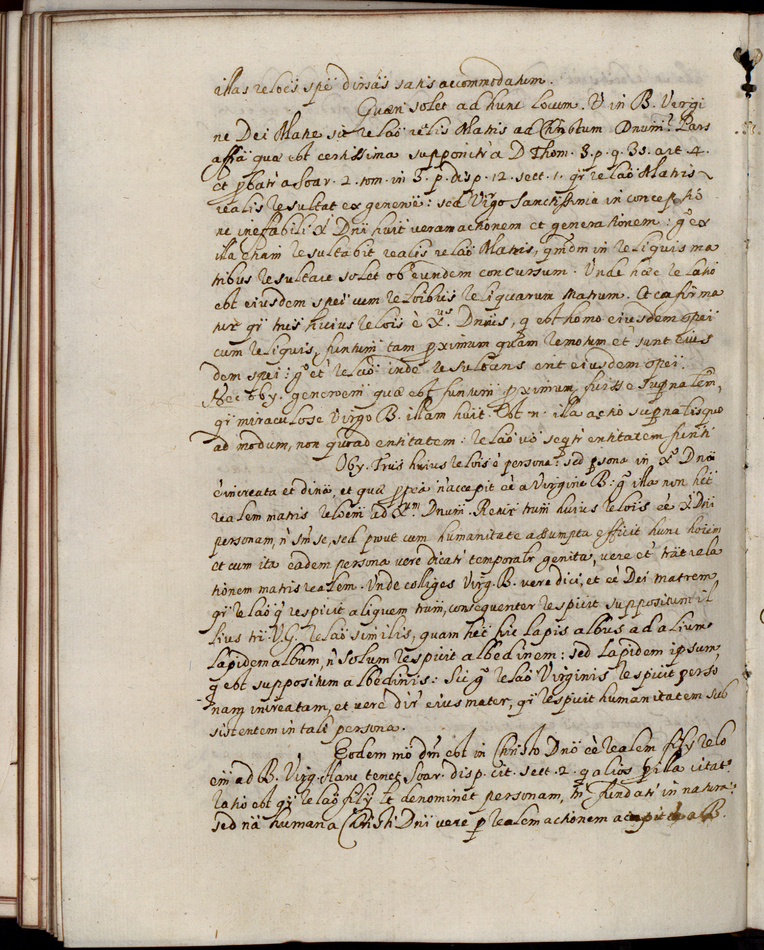 illas reloés spē diversas satis accommodatum.
Quæri solet ad hunc locum. V in B. Virgi
ne Dei Matre sit relaō reālis Matris ad Christum Dnum? Pars
affā quæ est certissima supponitr a D Thom. 3. p. q. 35. art. 4.
et pbatr a Soar. 2. tom. in 3. p. disp. 12. sect. 1. qr relaō Matris
realis resultat ex generōē: sed Virgo Sanctissima in conceptio
ne ineffabili Xi Dñi huit veram actionem et generationem: gº ex
illa etiam resultabit realis relaō Matris, qmdm in reliquis ma
tribus resultare solet ob eundem concursum. Unde hæc relatio
est eiusdem spēi cum reloibus reliquarum Matrum. Et cafirma
tur: qr trus huius relōis ē Xus. Dnus, q est homo eiusdem spēi
cum reliquis, funtum tam pximum quam remotum et sunt eius
dem spēi: gº et relaō inde resultans erit eiusdem spēi.
Nec oby. generōem quæ est funtum pximum, fuisse supnalem,
qr miraculose Virgo B. illam huit. Est n. illa actio supnalis quo
ad modum, non quoad entitatem: relaō vō seqtr entitatem funti
Oby. Trus huius relōis ē persona: sed psona in Xº Dnō
ē increata et dina, et qua ppea n accepit ēē a Virgine B: gº illa non het
realem matris relōem ad Xum. Dnum. Rentr trum huius relōis ēē Xi Dñi
personam, n sm se, sed prout cum humanitate assumpta efficit hunc hoiem
et cum ita eadem persona vere dicatr temporalr genita, vere et trat rela
tionem matris realem. Unde colliges Virg. B. vere dici, et ēē Dei matrem,
qr relaō q respicit aliquem trum, consequenter respicit suppositum il
lius tri. V. G. relaō similis, quam het hic lapis albus ad alium
lapidem album, n solum respicit albedinem: sed lapidem ipsum,
q est suppositum albedinis: Sic gº relaō Virginis respicit perso
nam increatam, et vere dir eius mater, qr respicit humanitatem sub
sistentem in tali persona.
Eodem mō dm est in Christo Dnō ēē realem filij relō
em ad B. Virg. Hanc tenet Soar. disp. cit. sect. 2. q alios p illa citat.
Ratio est qr relaō filij lt denominet personam, tn fundatr in natura:
sed nā humana Christi Dñi vere p realem actionem accepit ēē a B.